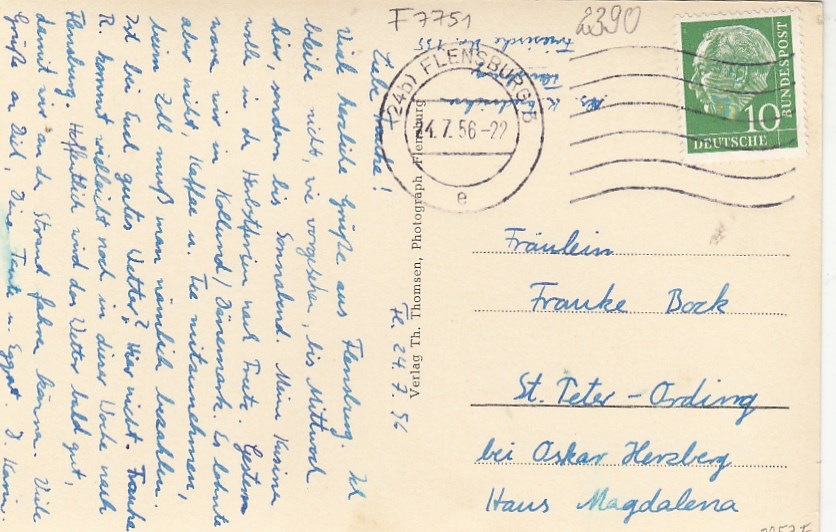 F 7751
2390
(24b) FLENSBURG
24.7.56-22
e
10
DEUTSCHE
BUNDESPOST
Abs. K.
Friesische Str. 135
Fl. 24.7.56
Liebe Frauke!
Viele herzliche Grüße aus Flensburg. Ich
bleibe nicht, wie vorgesehen, bis Mittwoch
hier, sondern bis Sonnabend. Meine Kusine
will in den Herbstferien nach
Gestern
waren wir in Kollund/Dänemark. Es lohnte
aber nicht, Kaffee u. Tee mitzunehmen,
beim Zoll muß man nämlich bezahlen.
Ist bei Euch gutes Wetter? Hier nicht. Frauke
R. kommt vielleicht noch in dieser Woche nach
Flensburg. Hoffentlich wird das Wetter bald gut,
damit wir an den Strand fahren können. Viele
Grüße an Dich, Deine Tante u. D. Karin.
Verlag Th. Thomsen, Photograph, Flensburg
Fräulein
Frauke Bock
St. Peter-Ording
bei Oskar Herzberg
Haus Magdalena